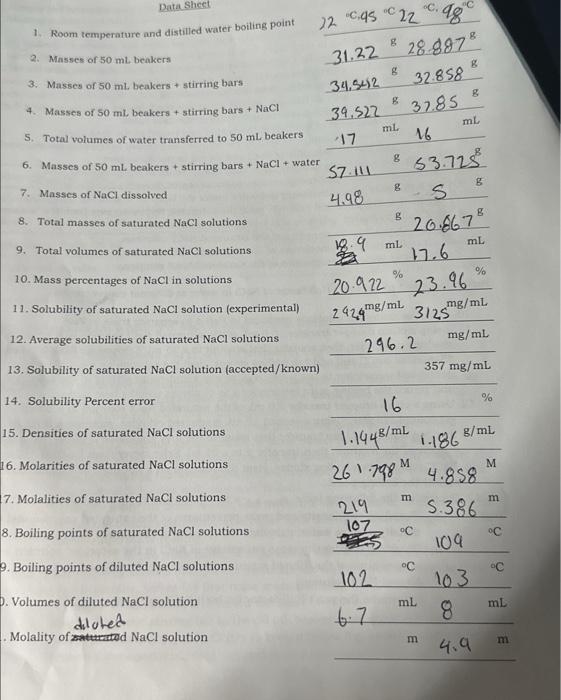 Data Sheet
1. Room temperature and distilled water boiling point 22 °C 95 °C 22 °C. 98 °C
2. Masses of 50 mL beakers 31.22 g 28.887 g
3. Masses of 50 mL beakers + stirring bars 34.542 g 32.858 g
4. Masses of 50 mL beakers + stirring bars + NaCl 39.522 g 37.85 g
5. Total volumes of water transferred to 50 mL beakers 17 mL 16 mL
6. Masses of 50 mL beakers + stirring bars + NaCl + water 57.111 g 53.725 g
7. Masses of NaCl dissolved 4.98 g 5 g
8. Total masses of saturated NaCl solutions g 20.867 g
9. Total volumes of saturated NaCl solutions 18.9 mL 17.6 mL
10. Mass percentages of NaCl in solutions 20.922 % 23.96 %
11. Solubility of saturated NaCl solution (experimental) 2929 mg/mL 3125 mg/mL
12. Average solubilities of saturated NaCl solutions 296.2 mg/mL
13. Solubility of saturated NaCl solution (accepted/known) 357 mg/mL
14. Solubility Percent error 16 %
15. Densities of saturated NaCl solutions 1.144 g/mL 1.186 g/mL
16. Molarities of saturated NaCl solutions 261.798 M 4.858 M
17. Molalities of saturated NaCl solutions 219 m 5.386 m
8. Boiling points of saturated NaCl solutions 107 °C 109 °C
9. Boiling points of diluted NaCl solutions 102 °C 103 °C
0. Volumes of diluted NaCl solution 6.7 mL 8 mL
diluted
. Molality of saturated NaCl solution m 4.9 m